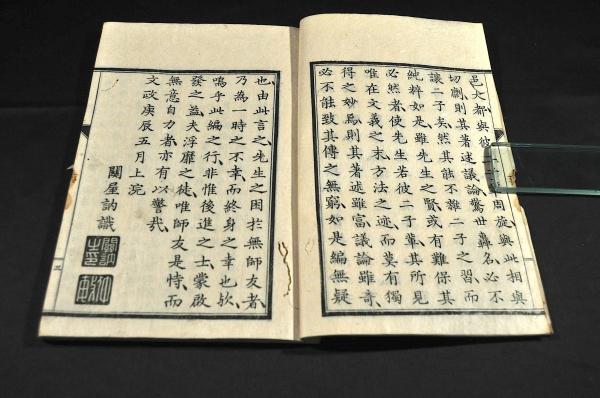 邑大都與彼二周旋與此相與
切劘則其著述議論驚世轟名必不
讓二子矣然其能不雜二子之習而
純粹如是雖先生之賢或有難保其
必然者使先生若彼二子輩其所見
唯在文義之末方法之迹而莫有獨
得之妙焉則其著述雖富議論雖奇
必不能致其傳之無窮如是編無疑
也由此言之先生之困於無師友者
乃為一時之不幸而終身之幸也歟
嗚乎此編之行非惟後進之士蒙啟
發之益夫浮靡之徒唯師友是恃而
無意自力者亦有以警哉
文政庚辰五月上浣
關屋訥識